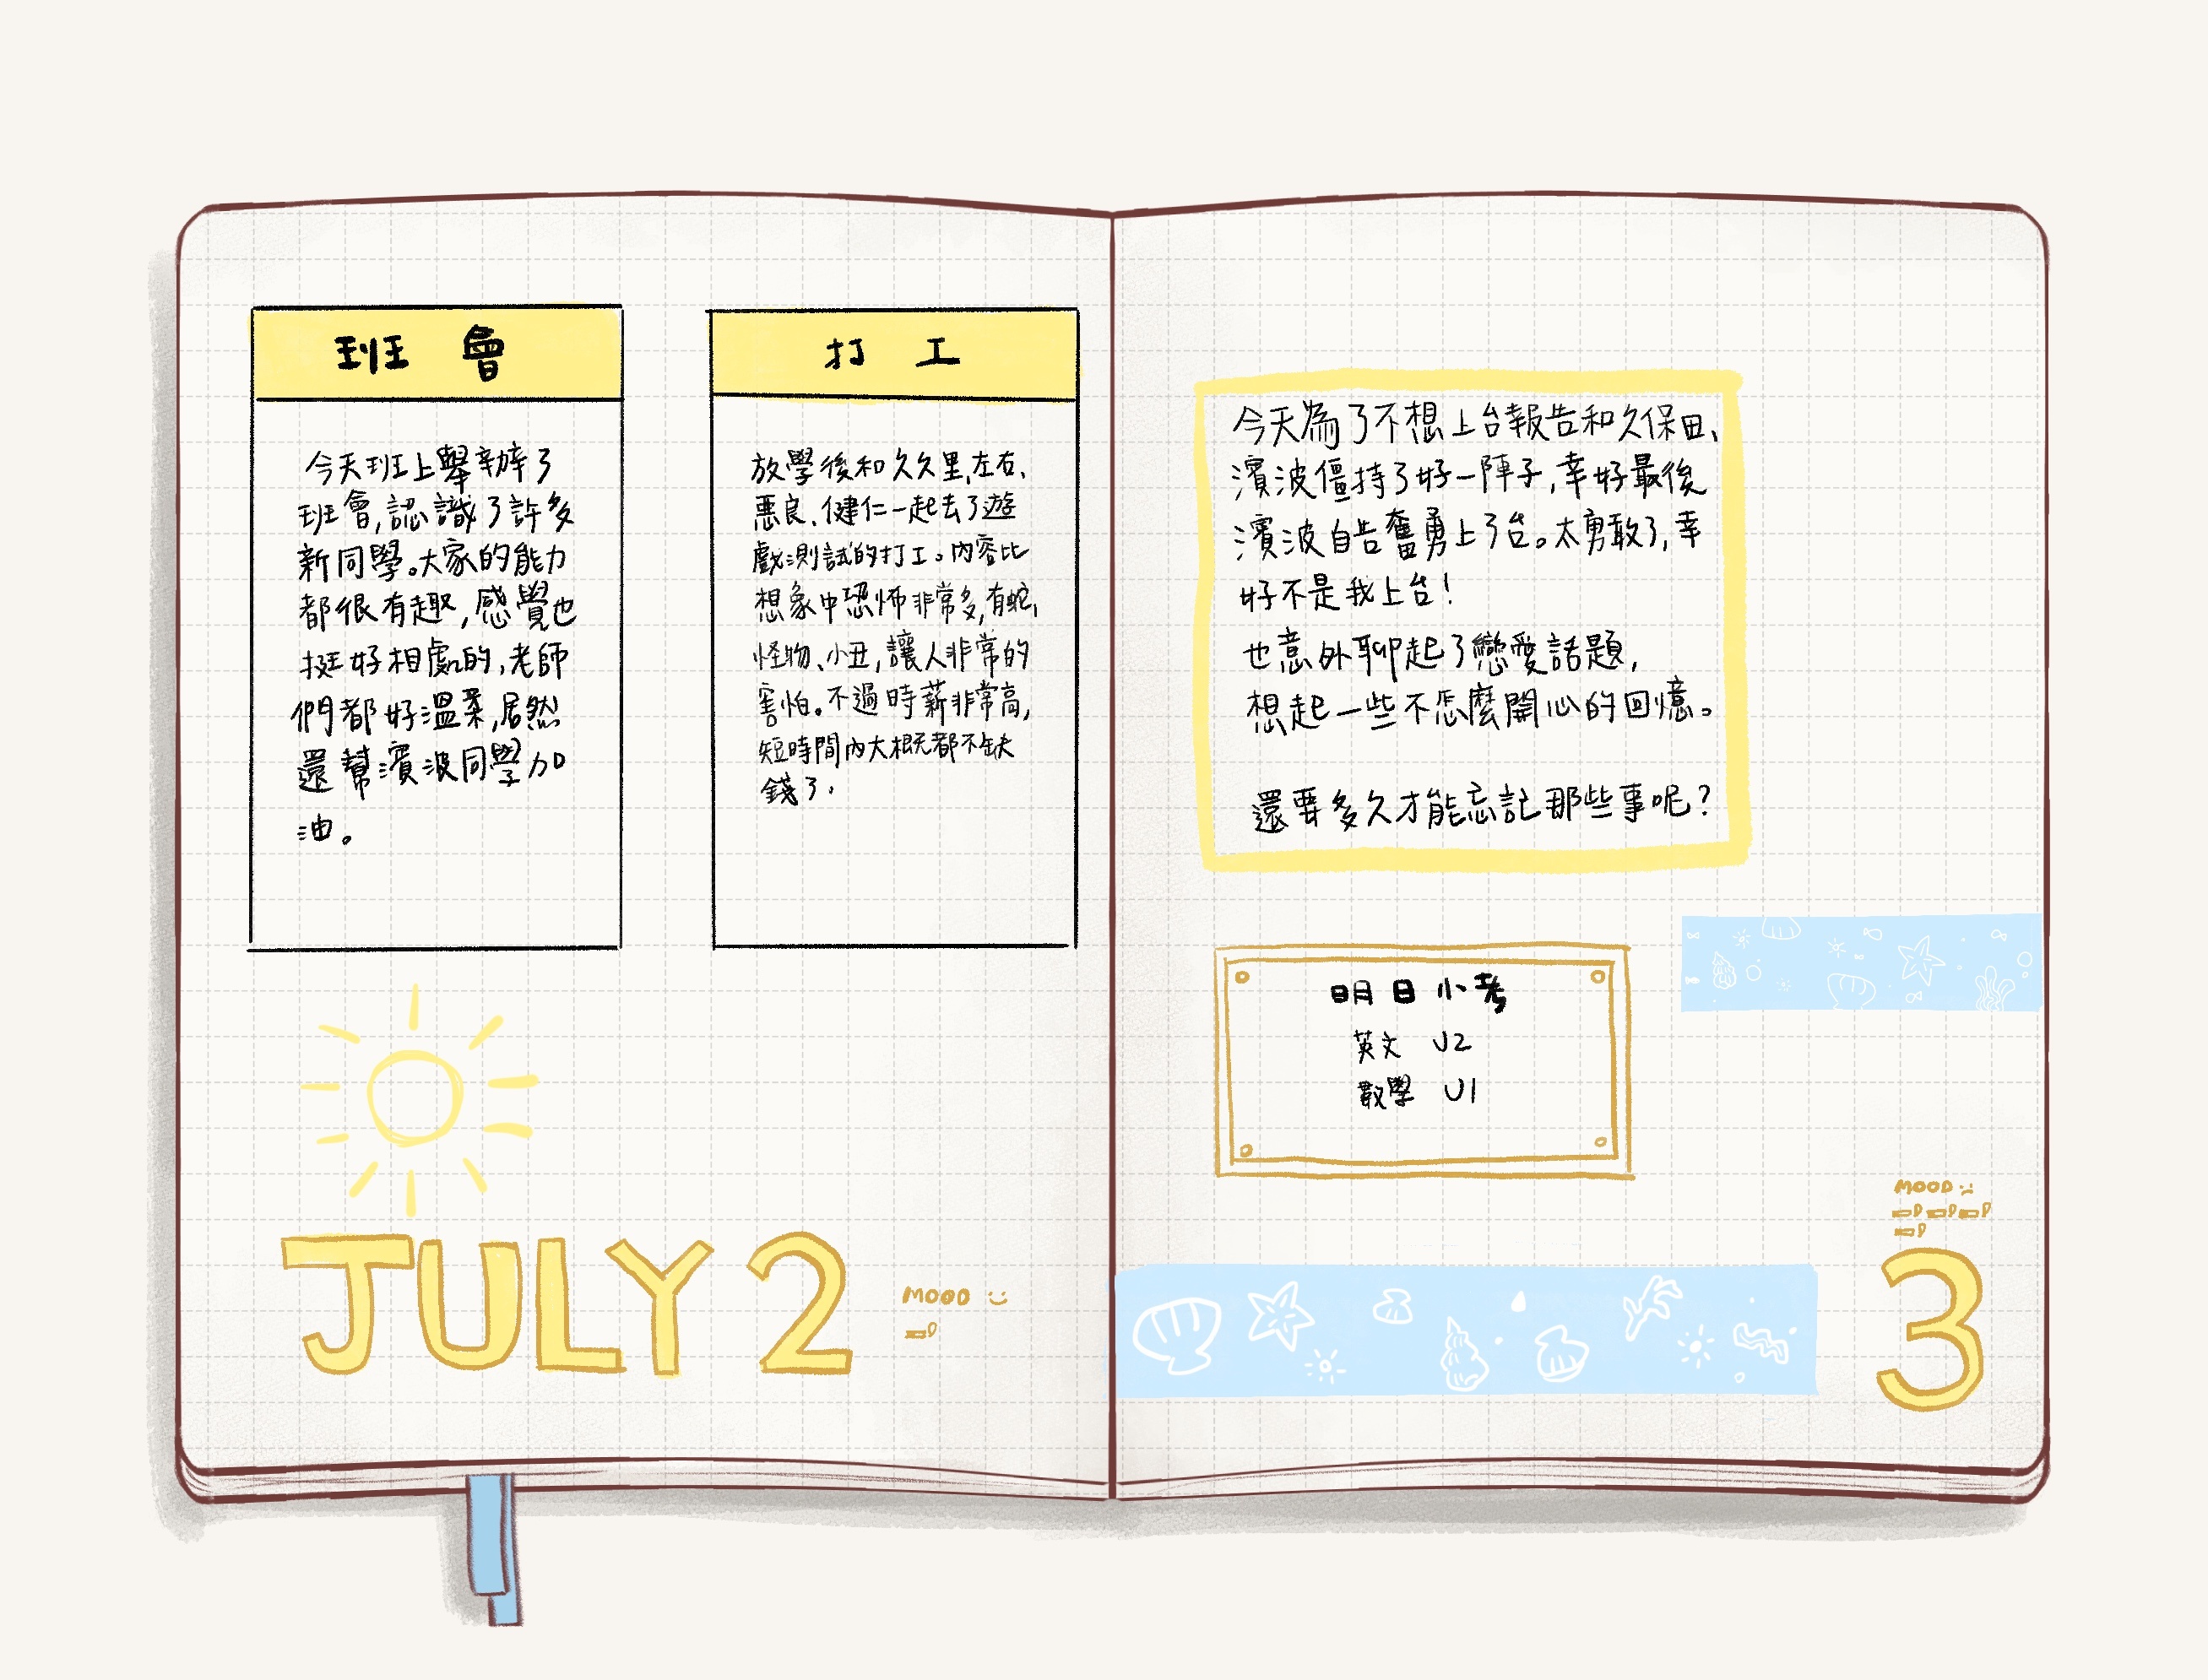 班會
今天班上舉辦了
班會,認識了許多
新同學。大家的能力
都很有趣,感覺也
挺好相處的,老師
們都好溫柔,居然
還幫濱波同學加
油。
打工
放學後和久久里、左右、
悪良、健仁一起去了遊
戲測試的打工。內容比
想象中恐怖非常多,有蛇、
怪物、小丑,讓人非常的
害怕。不過時薪非常高,
短時間內大概都不缺
錢了.
JULY 2
MOOD :)
今天為了不想上台報告和久保田、
濱波僵持了好一陣子,幸好最後
濱波自告奮勇上了台。太勇敢了,幸
好不是我上台!
也意外聊起了戀愛話題,
想起一些不怎麼開心的回憶。
還要多久才能忘記那些事呢?
明日小考
英文 U2
數學 U1
MOOD :(
3